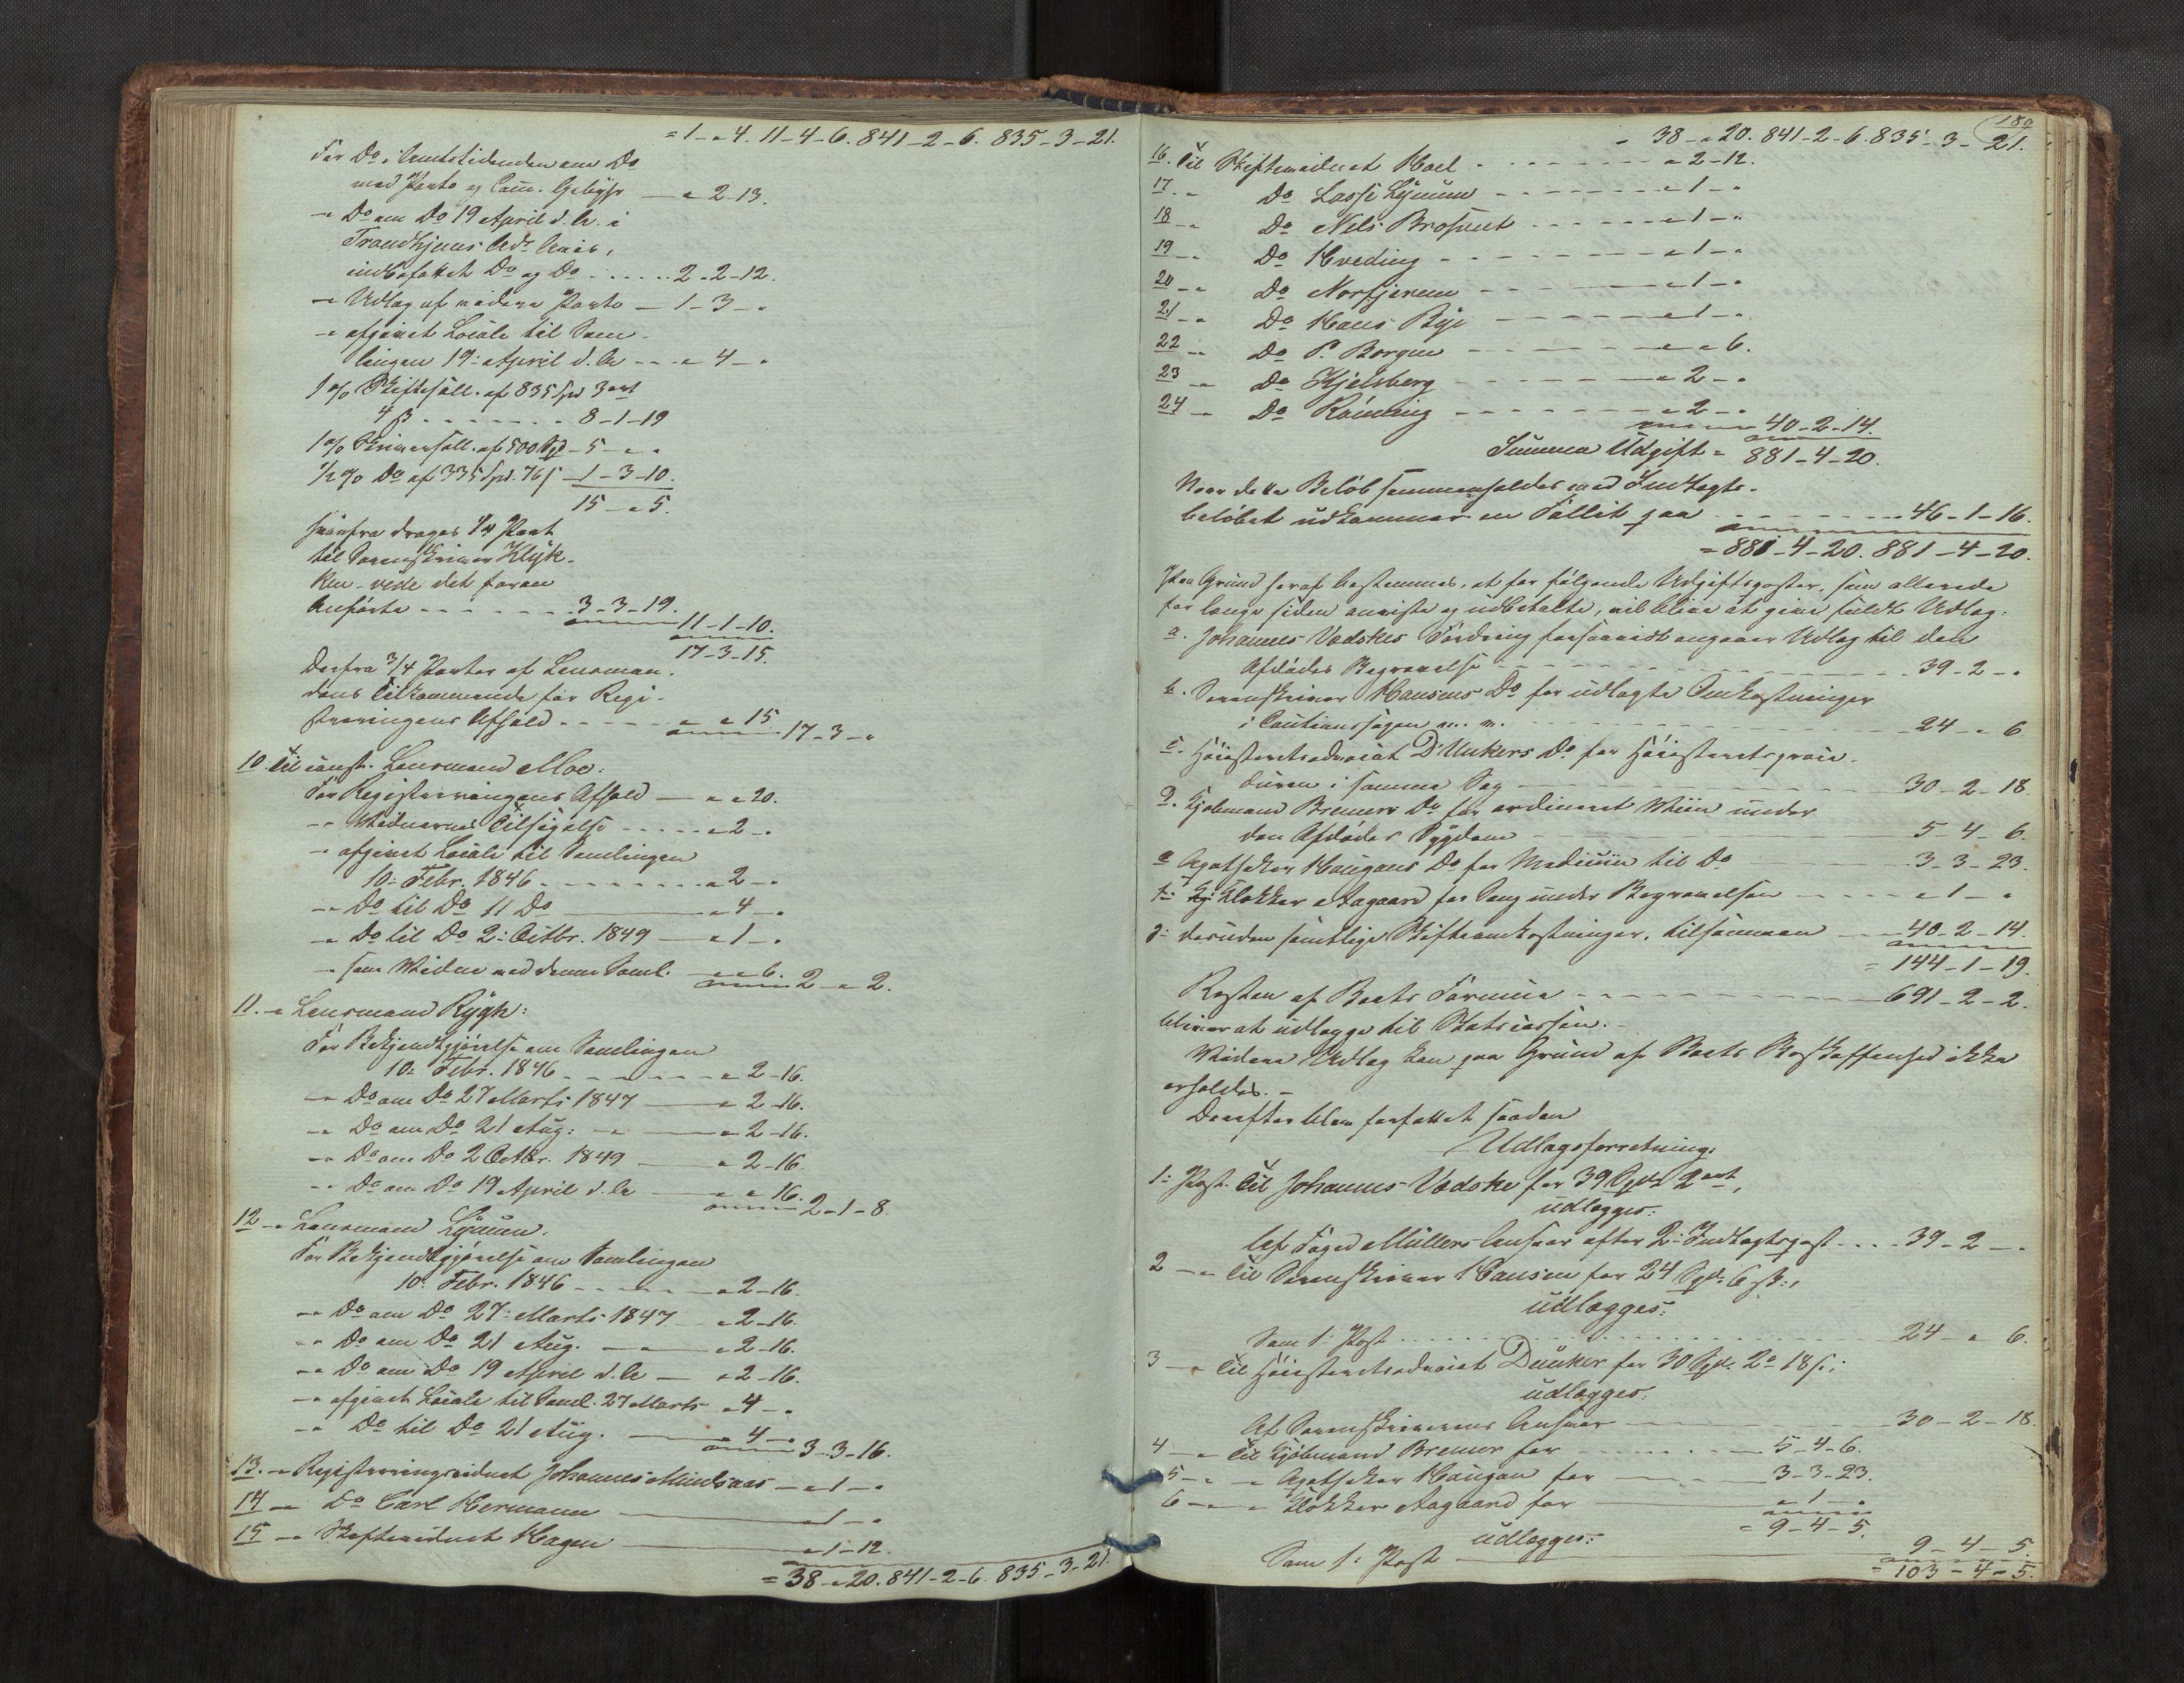 = 1 - " 4. 11 - 4 - 6. 841 - 2 - 6. 835 - 3 - 21.
For Do i Amtstidenden om Do
med Porto og Com. Gebyhr — " 2 - 13.
-" Do om Do 19 April d. A. i
Trondhjems Adr. Avis,
indbefattet Do og Do - - - - - 2 - 2 - 12.
-" Udlæg af videre Porto — 1 - 3 - "
-" afgivet Locale til Sam-
lingen 19: April d. A. - - " 4 - "
1 % Skiftesall. af 835 Spd 3 ort
4 β - - - - - - - 8 - 1 - 19
1 % Skriversall. af 500 Spd - 5 - " "
1/2 % Do af 335 Spd. 76 β 1 - 3 - 10.
15 - " 5.
herfra drages 1/4 Part
til Sorenskriver Klÿk-
ken - vide det foran
Anførte - - - - - - - 3 - 3 - 19.
11 - 1 - 10.
17 - 3 - 15.
Derfra 3/4 Parter af Lensman-
dens Tilkommende for Regi-
streringens Afhold - - - - - " " 15
17 - 3 - "
10. Til const. Lensmand Moe:
For Registreringens Afhold — " " 20.
-" Vidnernes Tilsigelse - - - - - " 2 - "
-" afgivet Locale til Samlingen
10: Febr. 1846 - - - - - - - - " 2 - "
-" Do til Do 11 Do ——— " 4 - "
-" Do til Do 2: Octbr. 1849 — " 1 - "
-" som Vidne ved denne Saml. — " " 6. 2 - " 2.
11. -" Lensmand Rygh:
For Bekjendtgjørelse om Samlingen
10: Febr. 1846 - - - - - - - " 2 - 16.
-" Do om Do 27 Marts 1847 — " 2 - 16.
-" Do om Do 21 Aug: - " — " 2 - 16.
-" Do om Do 2 Octbr. 1849 — " 2 - 16.
-" Do om Do 19 April d. A. — " " 16. 2 - 1 - 8.
12 -" Lensmand Lÿnum.
For Bekjendtgjørelse om Samlingen
10: Febr. 1846 - - - - - " 2 - 16.
-" Do om Do 27: Marts 1847 - " 2 - 16.
-" Do om Do 21 Aug. - " — " 2 - 16.
-" Do om Do 19 April d. A. — " 2 - 16.
-" afgivet Locale til Saml. 27 Marts " 4 - "
-" Do til Do 21 Aug. ——— " 4 - " 3 - 3 - 16.
13. -" Registreringsvidnet Johannes Mindsaas — " 1 - "
14 -" Do Carl Hermann ——— " 1 - "
15 -" Skiftevidnet Hagen ——— " 1 - 12.
= 38 - " 20. 841 - 2 - 6. 835 - 3 - 21.
189
= 38 - " 20. 841 - 2 - 6. 835 - 3 - 21.
16. Til Skiftevidnet Hoel - - - - - - - " 2 - 12.
17. -" Do Lasse Lÿnum - - - - - - - " 1 - "
18 -" Do Nels - - - - - - " 1 - "
19 -" Do Hveding - - - - - - - " 1 - "
20 -" Do - - - - - - " 1 - "
21 -" Do Hans Bye - - - - - - " 1 - "
22 -" Do P. Borgen - - - - - - " " 6.
23 -" Do Kjelsberg - - - - - - " 2 - "
24 -" Do Rönning - - - - - - - " 2 - "
40 - 2 - 14.
Summa Udgift = 881 - 4 - 20.
Naar dette Beløb sammenholdes med Indtægts-
beløbet udkommer en Fallit paa - - - - - - 46 - 1 - 16.
= 881 - 4 - 20. 881 - 4 - 20.
Paa Grund heraf bestemmes, at for følgende Udgiftsposter, som allerede
for længe siden anviste og udbetalte, vil blive at give fuldt Udlæg:
a. Johannes Vedokes Fordring forsaavidt angaaer Udlæg til den
Afdødes Begravelse - - - - - - - - - - 39 - 2 - "
b. Sorenskriver Hansens Do for udlagte Omkostninger
i Cautionssagen m. m. - - - - - - - - - 24 - " 6
c. Høiesteretsadvocat Dunkers Do for Høiesteretsproce-
duren i samme Sag - - - - - - - - - - - 30 - 2 - 18
d. Kjøbmand Bremers Do for ordineret Viin under
den Afdødes Sÿgdom - - - - - - - - - - - 5 - 4 - 6.
e Apotheker Haugans Do for Medicin til Do - - - - - 3 - 3 - 23.
f: Kj: klokker Aagaard for Sang under Begravelsen - - - - - " 1 - "
g: desuden samtlige Skifteomkostninger, tilsammen - - - 40 - 2 - 14.
= 144 - 1 - 19.
Resten af Boets Formue - - - - - - - - - - - - 691 - 2 - 2.
bliver at udlægge til Statscassen. -
Videre Udlæg kan paa Grund af Boets Beskaffenhed ikke
erholdes. -
Derefter blev forfattet saadan
Udlægsforretning:
1: Post. Til Johannes Vedoke for 39 Spd 2 ort,
udlægges:
Af Foged Müllers Ansvar efter 2: Indtægtspost - - - 39 - 2 - "
2 -" Til Sorenskriver Hansen for 24 Spd: 6 β:,
udlægges:
Som 1: Post - - - - - - - - - - - - - - - 24 - " 6.
3 -" Til Høiesteretsadvocat Dunker for 30 Spd. 2 o 18 β:
udlægges:
Af Sorenskriverens Ansvar - - - - - - - - - 30 - 2 - 18.
4 -" Til Kjøbmand Bremer for - - - - - - - 5 - 4 - 6.
5 -" -" Apotheker Haugan for - - - - 3 - 3 - 23.
6 -" -" Klokker Aagaard for ——— " 1 - "
= 9 - 4 - 5.
udlægges:
Som 1: Post ——— 9 - 4 - 5.
= 103 - 4 - 5.